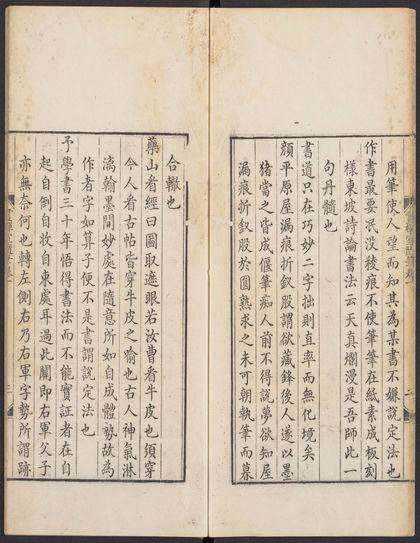 用筆使人望而知其為某書不嫌說定法也
作書最要泯沒稜痕不使筆筆在紙素成板刻
樣東坡詩論書法云天真爛漫是吾師此一
句丹髓也
書道只在巧妙二字拙則直率而無化境矣
顏平原屋漏痕折釵股謂欲藏鋒後人遂以墨
猪當之皆成偃筆痴人前不得說夢欲知屋
漏痕折釵股於圓熟求之未可朝執筆而暮
合轍也
藥山看經曰圖取遮眼若汝曹看牛皮也須穿
今人看古帖皆穿牛皮之喻也古人神氣淋
漓翰墨間妙處在隨意所如自成體勢故為
作者字如算子便不是書謂說定法也
予學書三十年悟得書法而不能實証者在自
起自倒自收自束處耳過此關即右軍父子
亦無奈何也轉左側右乃右軍字勢所謂跡
三